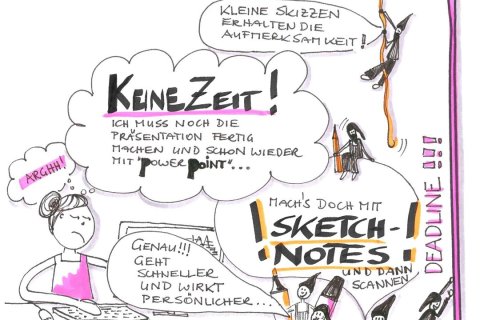 KLEINE SKIZZEN
ERHALTEN DIE
AUFMERKSAMKEIT!!!
KEINE ZEIT!
ICH MUSS NOCH DIE
PRÄSENTATION FERTIG
MACHEN UND SCHON WIEDER
MIT "POWER POINT"...
ARGHH!
MACH'S DOCH MIT
! SKETCH-
NOTES !
UND DANN
SCANNEN
GENAU!!!
GEHT
SCHNELLER
UND WIRKT
PERSÖNLICHER...
DEADLINE !!!